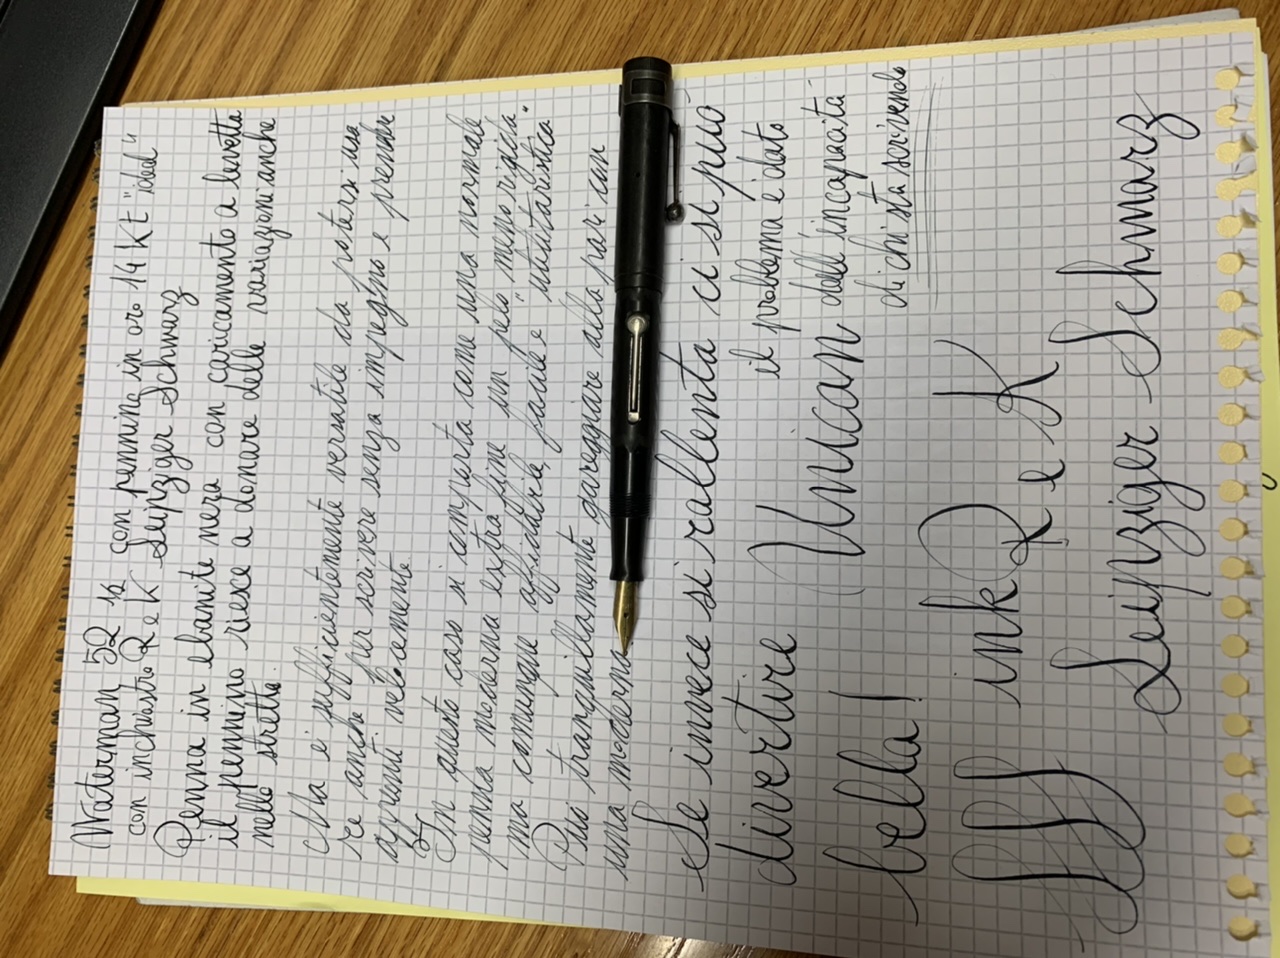 Waterman 52 ½ con pennino in oro 14 kt "ideal"
con inchiostro R e K Leipziger Schwarz
Penna in ebanite nera con caricamento a levetta
il pennino riesce a donare delle variazioni anche
nello stretto.
Ma è sufficientemente versatile da potersi usa
re anche per scrivere senza impegno e prendere
appunti velocemente.
In questo caso si comporta come una normale
penna moderna extra fine un pelo meno rigida
ma comunque affidabile, facile e "utilitaristica".
Puoi tranquillamente gareggiare alla pari con
una moderna.
Se invece si rallenta ci si può
divertire
il problema è dato
dall'incapacità
di chi sta scrivendo
Unican
bella!
ink R e K
Leipziger Schwarz